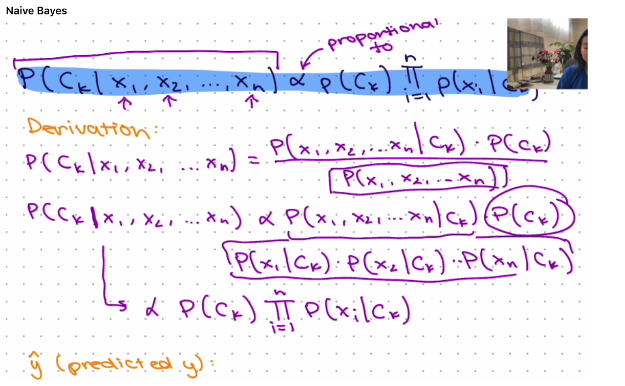 Naive Bayes
proportional to
P(Cₖ | x₁, x₂, ..., xₙ) ∝ P(Cₖ) ∏ᵢ₌₁ⁿ P(xᵢ |
Derivation:
P(Cₖ | x₁, x₂, ... xₙ) = P(x₁, x₂, ... xₙ | Cₖ) · P(Cₖ) / P(x₁, x₂, .. xₙ)
P(Cₖ | x₁, x₂, ... xₙ) ∝ P(x₁, x₂, ... xₙ | Cₖ) P(Cₖ)
P(x₁ | Cₖ) · P(x₂ | Cₖ) ·· P(xₙ | Cₖ)
∝ P(Cₖ) ∏ᵢ₌₁ⁿ P(xᵢ | Cₖ)
ŷ (predicted y):